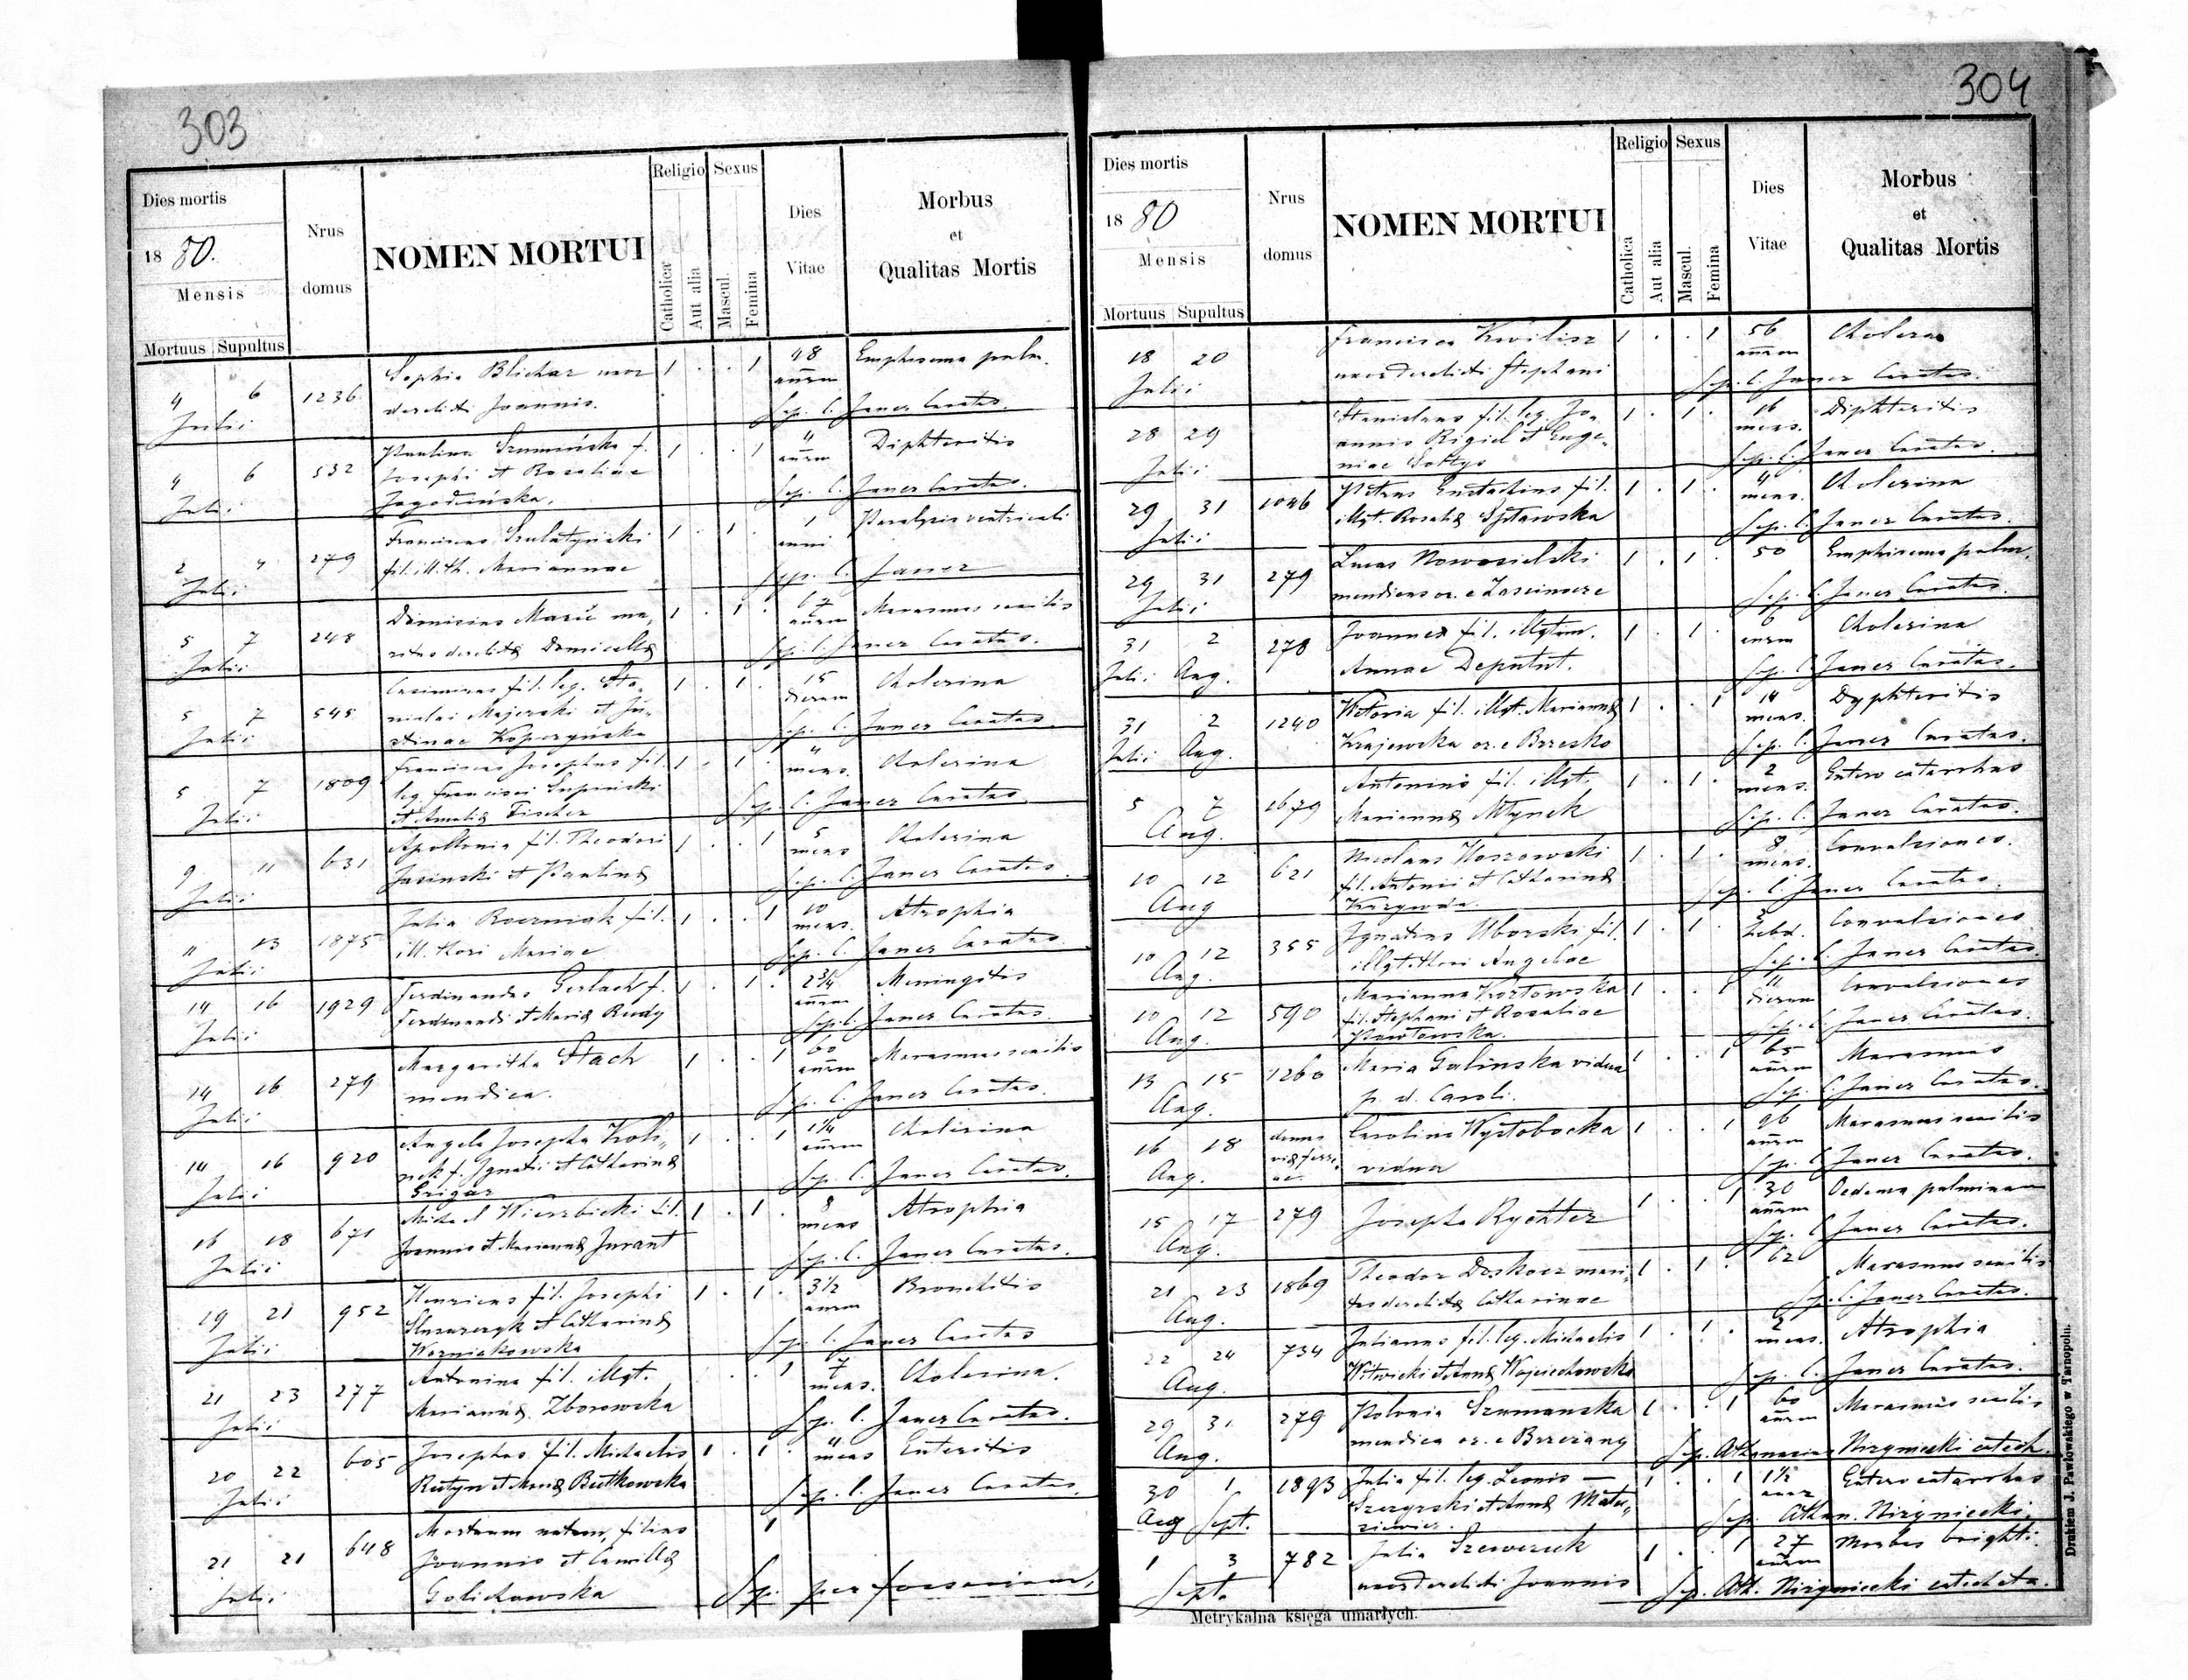 303
Dies mortis
18 80.
Mensis
Mortuus Supultus
Nrus
domus
NOMEN MORTUI
Religio
Catholica
Aut alia
Sexus
Mascul.
Femina
Dies
Vitae
Morbus
et
Qualitas Mortis
4 6 1236 Sophia Blichar uxor 1 . . 1 48 Emphisema pulm.
Julii derelicti Joannis. annor Sep. C. Janer Curatus.
4 6 532 Paulina Szumińska f. 1 . . 1 4 Diphteritis
Josephi et Rosaliae annor
Julii Jagodzińska. Sep. C. Janer Curatus.
2 4 279 Franciscus 1 . 1 . 1 Paralysis ventriculi
Julii fil. ill. th. Mariannae anni Sep. C. Janer
5 7 248 Dionisius ma- 1 . 1 . 67 Marasmus senilis
Julii ritus derelictae Domicellae annor Sep. C. Janer Curatus.
5 7 545 Casimirus fil. leg. Sta- 1 . 1 . 15 Cholerina
nislai Majerski et Ju- dierum
Julii stinae Kopczyńska Sep. C. Janer Curatus.
5 7 1809 Franciscus Josephus fil. 1 . 1 . 4 Cholerina
leg. Francisci Supiński mens.
Julii et Amaliae Fischer Sep. C. Janer Curatus
9 11 631 Apollonia fil. Theodori 1 . . 1 5 Cholerina
Julii Jasinski et Paulinae mens Sep. C. Janer Curatus.
11 13 1875 Julia fil. 1 . . 1 10 Atrophia
Julii ill. thori Mariae mens. Sep. C. Janer Curatus.
14 16 1929 Ferdinandus Gerlach f. 1 . 1 . 2 3/4 Meningitis
Julii Ferdinandi et Mariae Rudy annor Sep. C. Janer Curatus.
14 16 279 Margaritha Stach 1 . . 1 60 Marasmus senilis
Julii mendica. annor Sep. C. Janer Curatus.
14 16 920 Angela Josepha 1 . . 1 1 1/4 Cholerina
f. Ignatii et Catharinae annor
Julii Grigar Sep. C. Janer Curatus.
16 18 671 Michael Wierzbicki fil. 1 . 1 . 8 Atrophia
Julii Joannis et Mariannae Jurant mens Sep. C. Janer Curatus.
19 21 952 Henricus fil. Josephi 1 . 1 . 3 1/2 Bronchitis
Ślusarczyk et Catharinae annor
Julii Woźniakowska Sep. C. Janer Curatus
21 23 277 Antonina fil. illgt. . . 1 7 Cholerina.
Julii Mariannae Zborowska mens. Sep. C. Janer Curatus.
20 22 605 Josephus fil. Michaelis 1 . 1 . 4 Enteritis
Julii Rutyn et Mariae Butkowska mens Sep. C. Janer Curatus.
21 21 648 Mortuum natum, filius 1
Joannis et Camillae
Julii Golichowska Sep. per
304
Dies mortis
18 80
Mensis
Mortuus Supultus
Nrus
domus
NOMEN MORTUI
Religio
Catholica
Aut alia
Sexus
Mascul.
Femina
Dies
Vitae
Morbus
et
Qualitas Mortis
18 20 Francisca Kwilisz 1 . . 1 56 Cholera
Julii uxor derelicti Stephani annor Sep. C. Janer Curatus.
28 29 Stanislaus fil. leg. Jo- 1 . 1 . 16 Diphteritis
annis Rigiel et Euge- mens.
Julii niae Sołtys Sep. C. Janer Curatus.
29 31 1046 Petrus Eustachius fil. 1 . 1 . 4 Cholerina
Julii illgt. Rosaliae mens. Sep. C. Janer Curatus.
29 31 279 Lucas Nowosielski 1 . 1 . 50 Emphisema pulm.
Julii mendicus or. e Sep. C. Janer Curatus.
31 2 278 Joannes fil. illgtim. 1 . 1 . 6 Cholerina
Julii Aug. Annae Deputat. Sep. C. Janer Curatus.
31 2 1240 Victoria fil. illgt. Mariannae 1 . . 1 14 Dyphteritis
Julii Aug. Krajewska or. e Brzesko mens. Sep. C. Janer Curatus.
5 7 1679 Antonius fil. illgt. 1 . 1 . 2 Entero catarrhus
Aug. Mariannae Młynek mens. Sep. C. Janer Curatus.
10 12 621 Nicolaus Koszowski 1 . 1 . 8 Convulsiones.
fil. Antonii et Catharinae mens.
Aug Sep. C. Janer Curatus.
10 12 355 Ignatius Uborski fil. 1 . 1 . 3 Convulsiones
Aug. illgt. thori Angelae hebd. Sep. C. Janer Curatus.
10 12 590 Marianna Kozłowska 1 . . 1 11 Convulsiones
fil. Stephani et Rosaliae dierum
Aug. Pawłowska. Sep. C. Janer Curatus.
13 15 1260 Maria Galinska vidua 1 . . 1 65 Marasmus
Aug. p. d. Caroli. annor Sep. C. Janer Curatus.
16 18 domus Carolina Wysłobocka 1 . . 1 96 Marasmus senilis
Aug. viae ferre- vidua annor Sep. C. Janer Curatus.
ae.
15 17 279 Josepha Rychter 1 . . 1 30 Oedema pulmonum
Aug. annor Sep. C. Janer Curatus.
21 23 1869 Theodor Doskocz mari- 1 . 1 . 62 Marasmus senilis
Aug. tus derelictae Catharinae Sep. C. Janer Curatus.
22 24 734 Julianus fil. leg. Michaelis 1 . 1 . 2 Atrophia
Aug. Witwicki et Annae Wojciechowska mens. Sep. C. Janer Curatus.
29 31 279 Polonia Szumanska 1 . . 1 60 Marasmus senilis
Aug. mendica or. e Brzeżany annor Sep. Athanasius Niżyniecki catech.
30 1 1893 Julia fil. leg. Leonis — 1 . . 1 1 1/2 Entero catarrhus
Szczyrski et Annae Mate-
Aug Sept. Sep. Athan. Niżyniecki.
1 3 782 Julia Szewczuk 1 . . 1 27 Morbus brighti.
Sept. uxor derelicti Joannis annor Sep. Ath. Niżyniecki catecheta.
Metrykalna księga umarłych.
Drukiem J. Pawłowskiego w Tarnopolu.